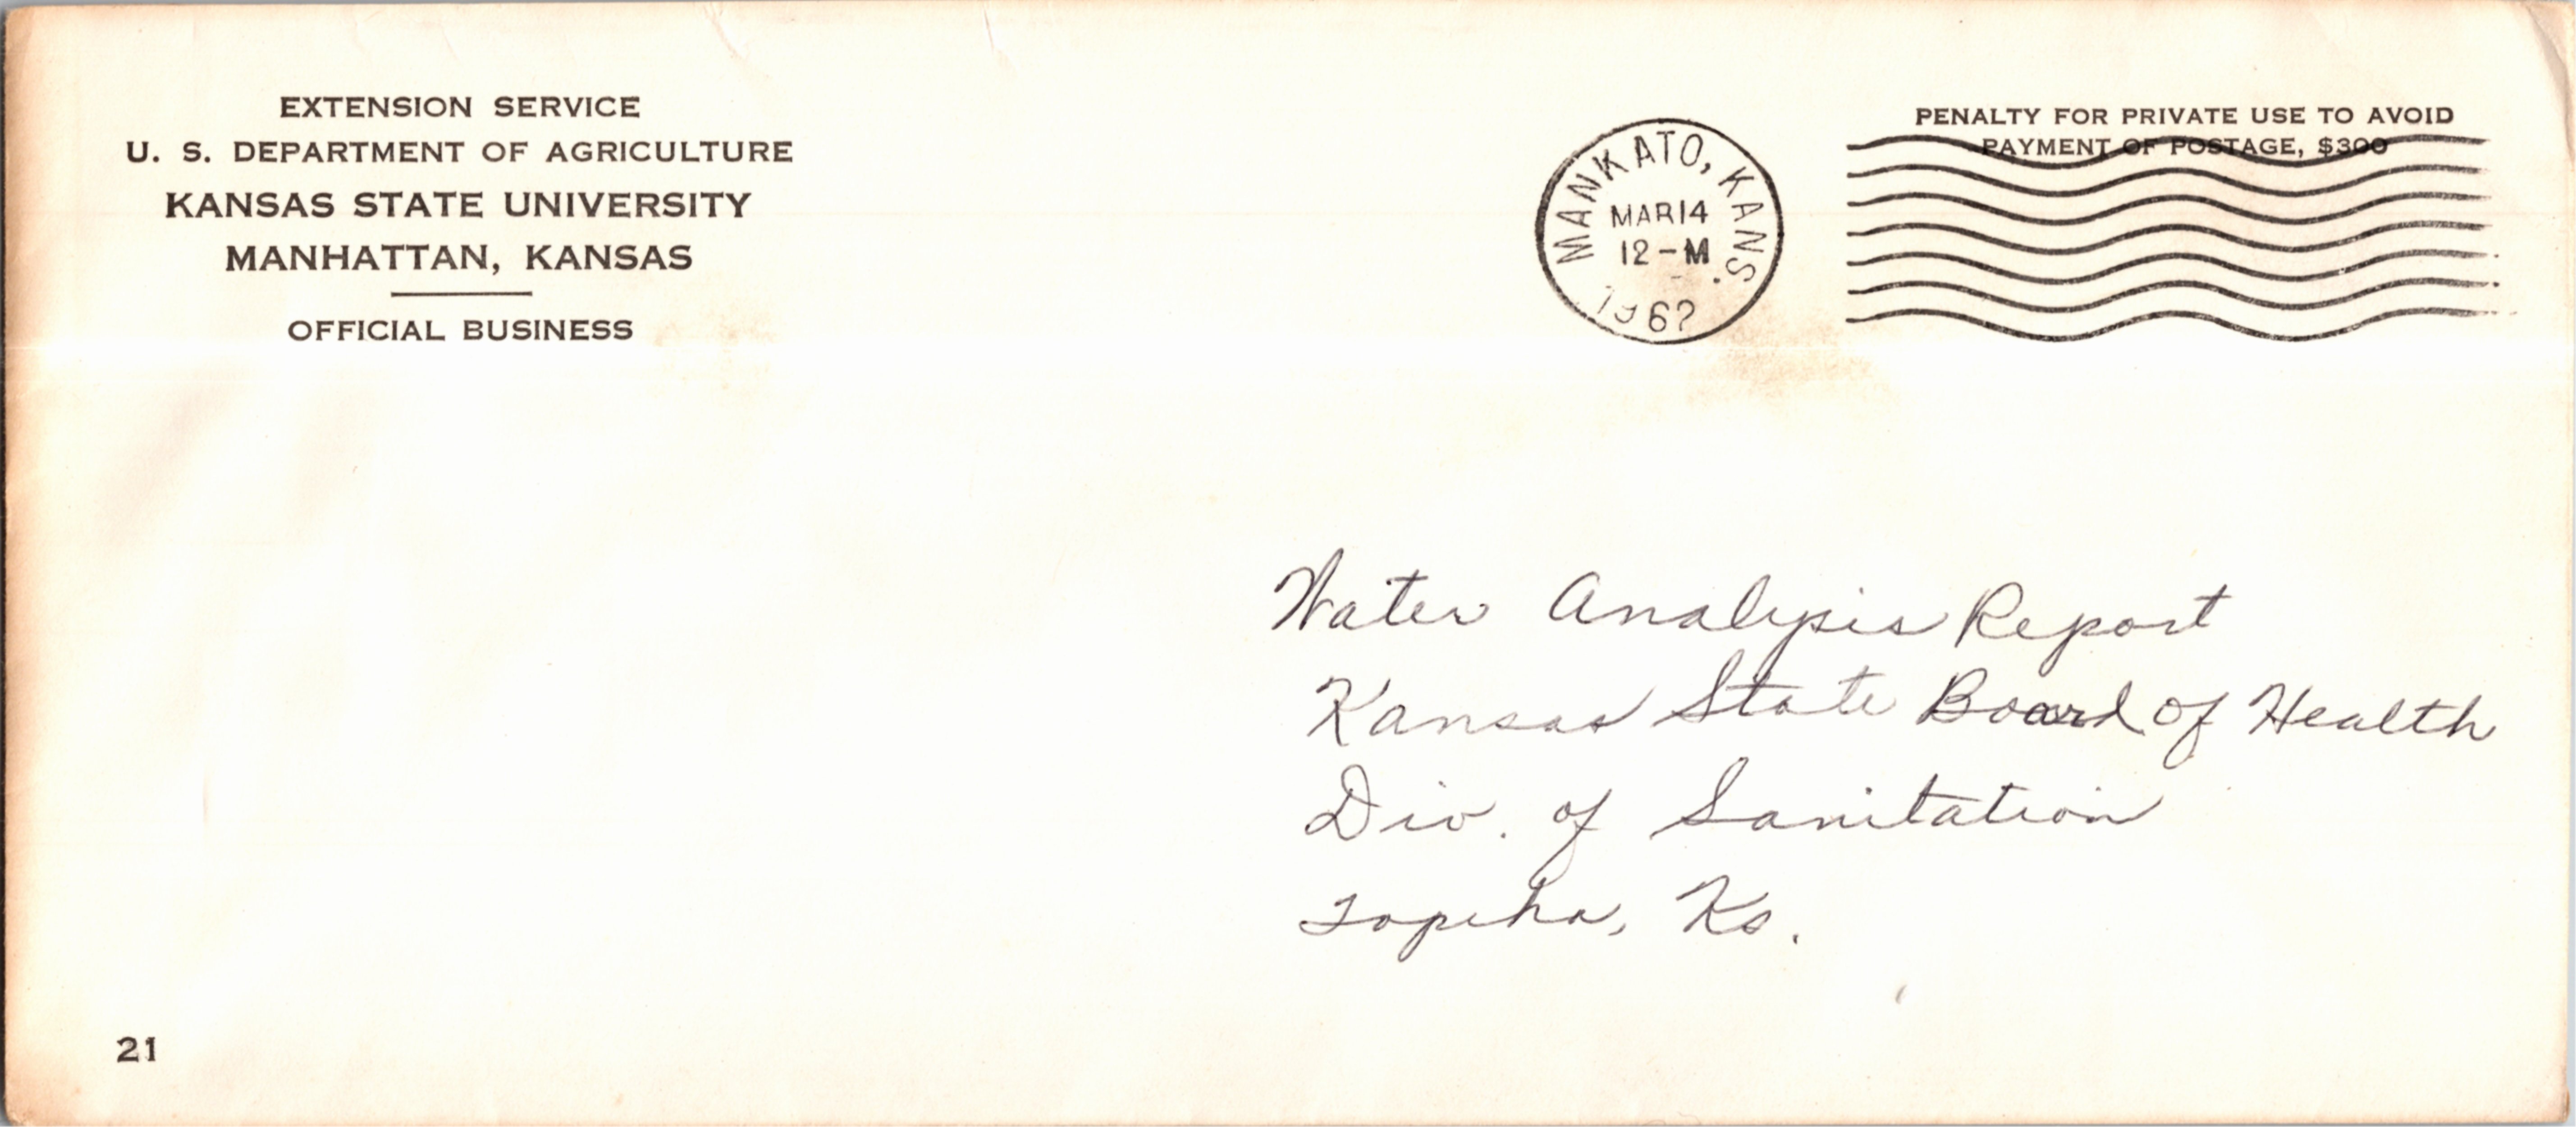 EXTENSION SERVICE
U. S. DEPARTMENT OF AGRICULTURE
KANSAS STATE UNIVERSITY
MANHATTAN, KANSAS
OFFICIAL BUSINESS
MANKATO, KANS.
MAR 14
12-M
PENALTY FOR PRIVATE USE TO AVOID
PAYMENT OF POSTAGE, $300
Water Analysis Report
Kansas State Board of Health
Div. of Sanitation
Topeka, Ks.
21